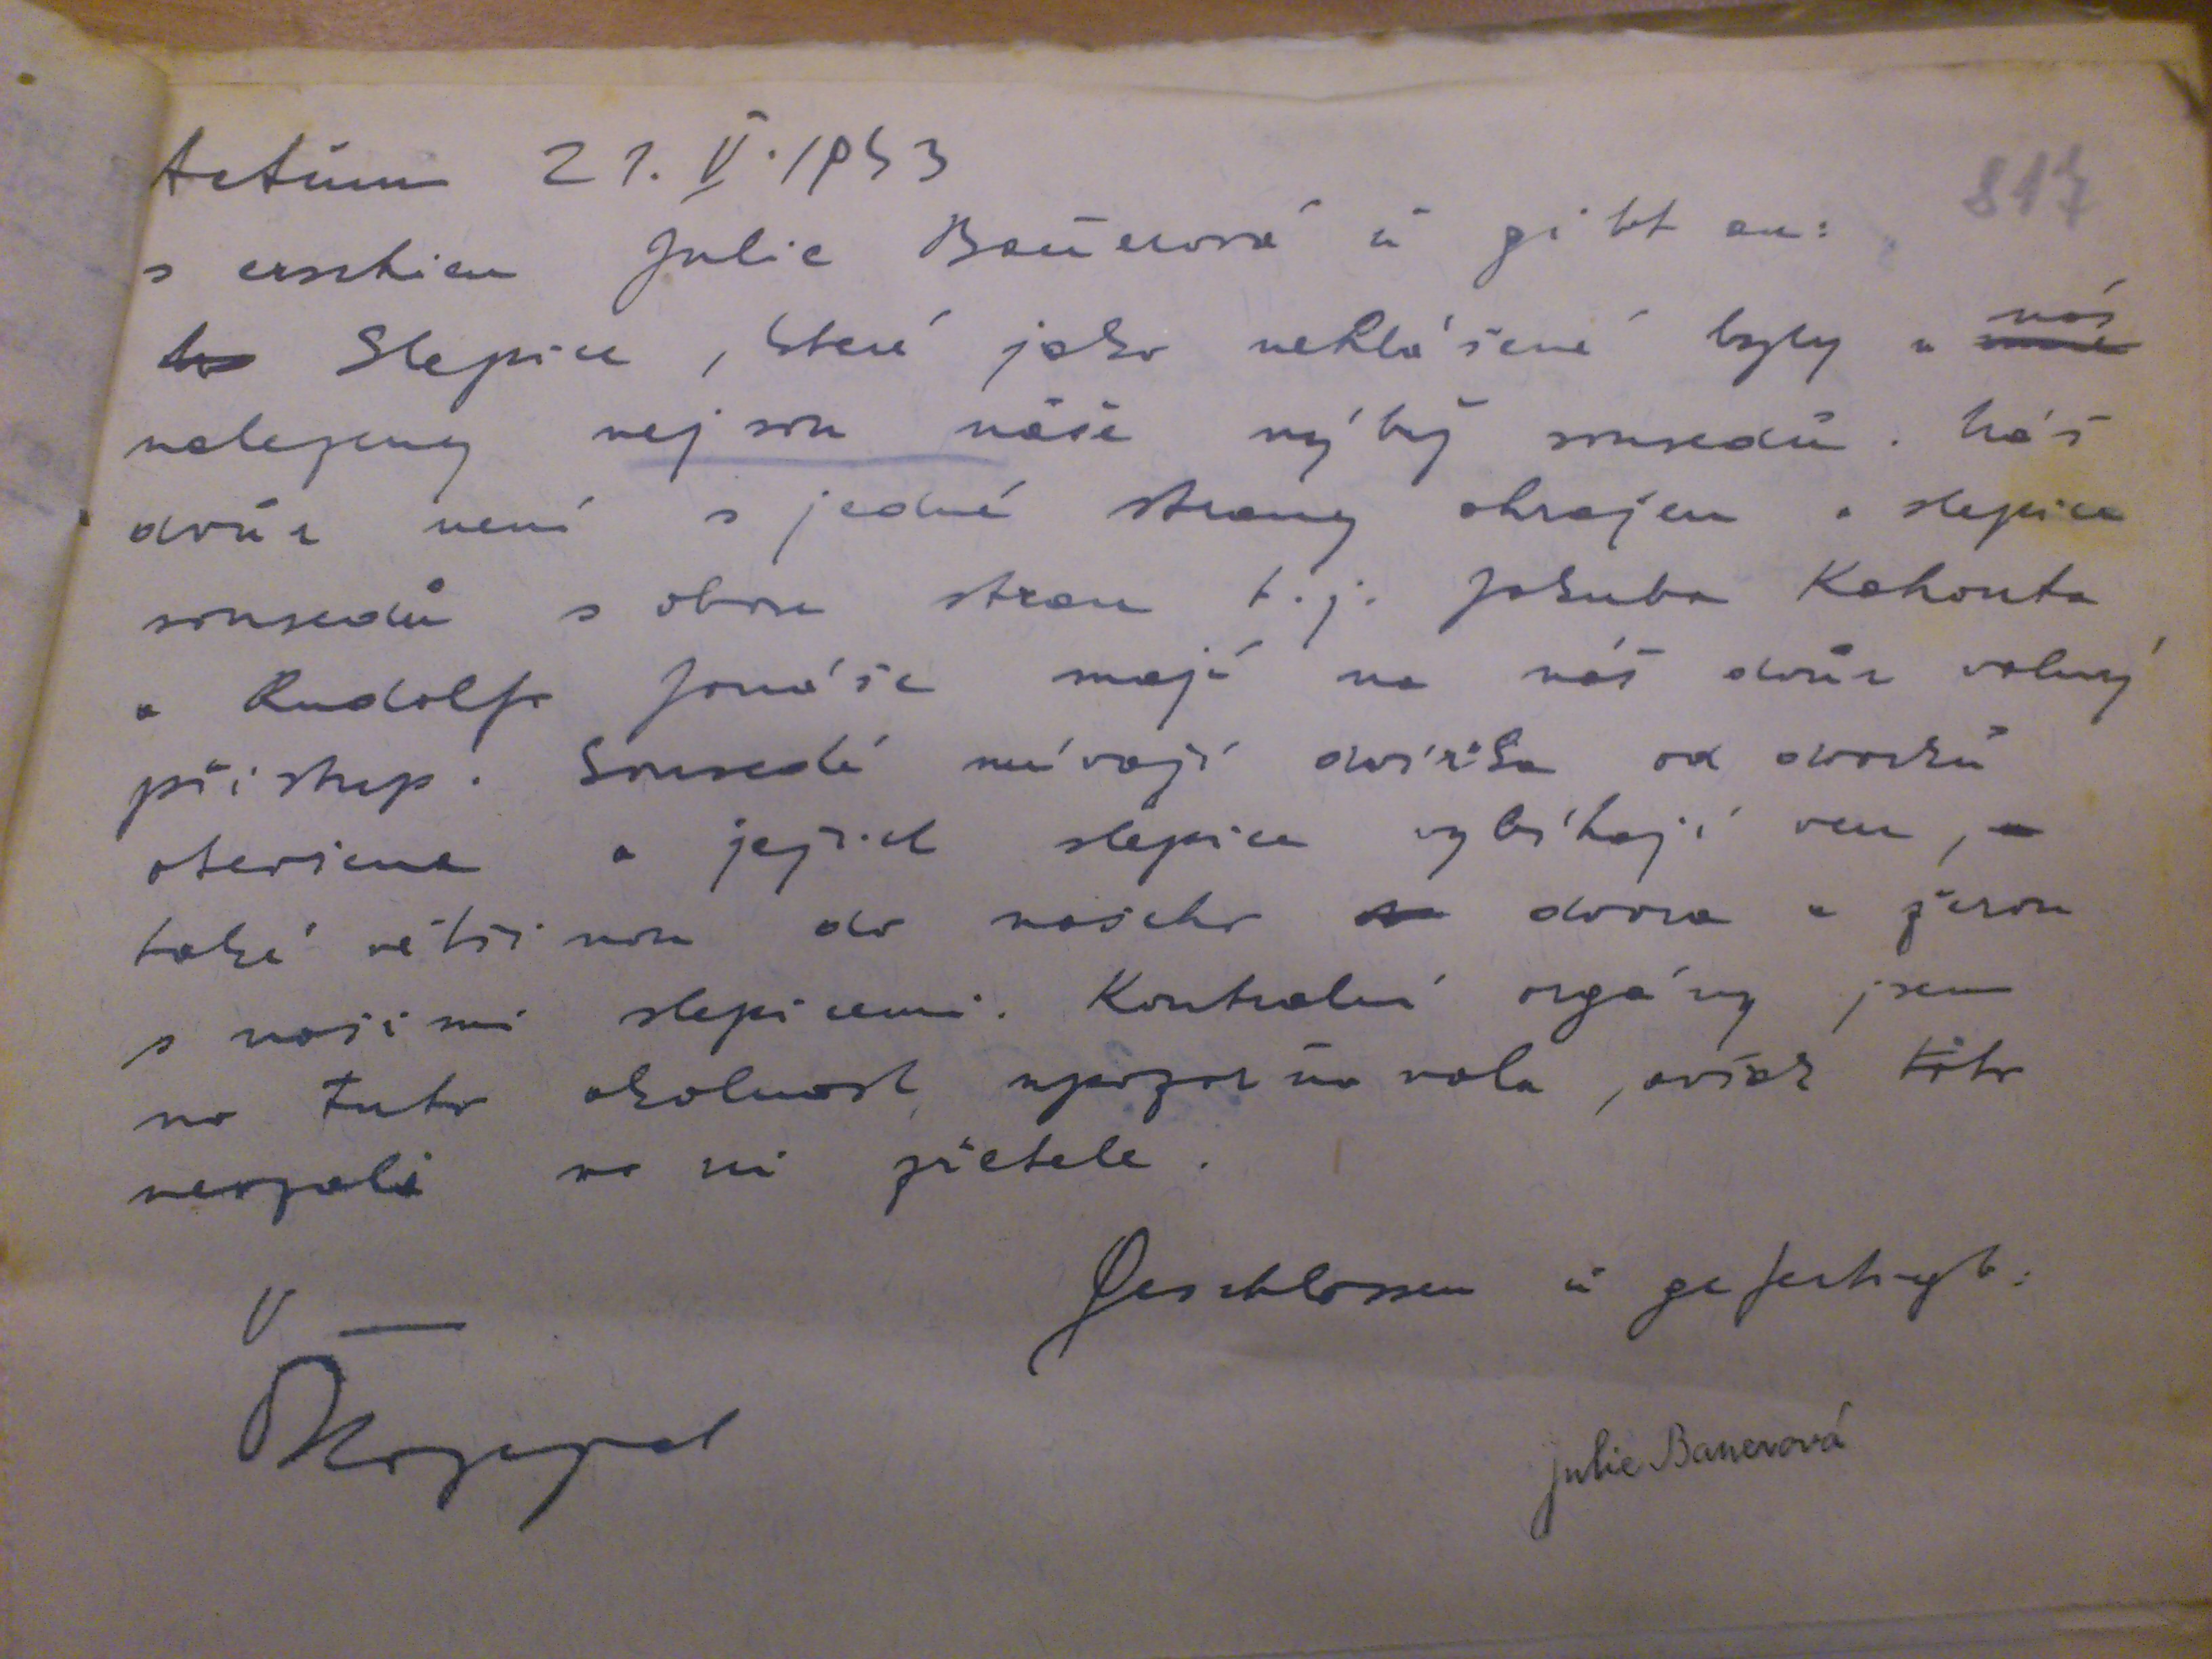 Actum 21. V. 1943
817
s erschien Julie Baŭerová ŭ gibt an:
Slepice, které jako nehlášené byly u nás
nalezeny nejsou náše nýbrž sousedů. Náš
dvůr není s jedné strany ohrajen a slepice
sousedů s obou stran t.j. Jakuba Kohouta
a Rudolfa Jonáše mají na náš dvůr volný
přistup. Sousedé mívají dvířka od dvorků
otevřena a jejich slepice vybíhají ven,
také většinou do našeho dvora a žerou
s našimi slepicemi. Kontrolní orgány jsem
na tuto okolnost upozorňovala, avšak tito
nevzali na ni zřetele.
Geschlossen ŭ gefertigt:
V
Julie Bauerová